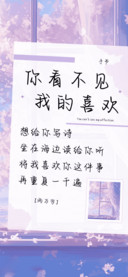 你看不见
我的喜欢
想给你写诗
坐在海边读给你听
将我喜欢你这件事
再重复一千遍